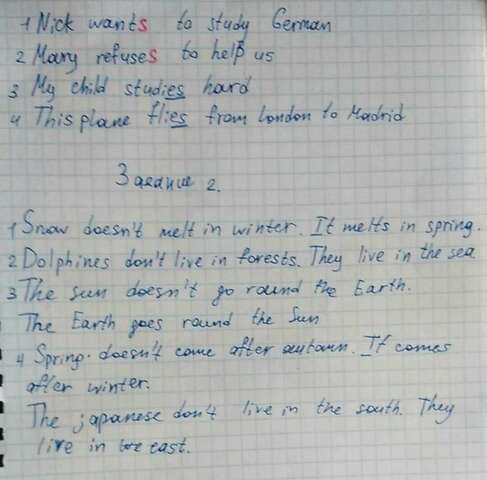 1 Nick wants to study German
2 Mary refuses to help us
3 My child studies hard
4 This plane flies from London to Madrid
Задание 2.
1 Snow doesn't melt in winter. It melts in spring.
2 Dolphines don't live in forests. They live in the sea
3 The sun doesn't go round the Earth.
The Earth goes round the Sun
4 Spring. doesn't come after autumn. It comes
after winter.
The japanese don't live in the south. They
live in the east.